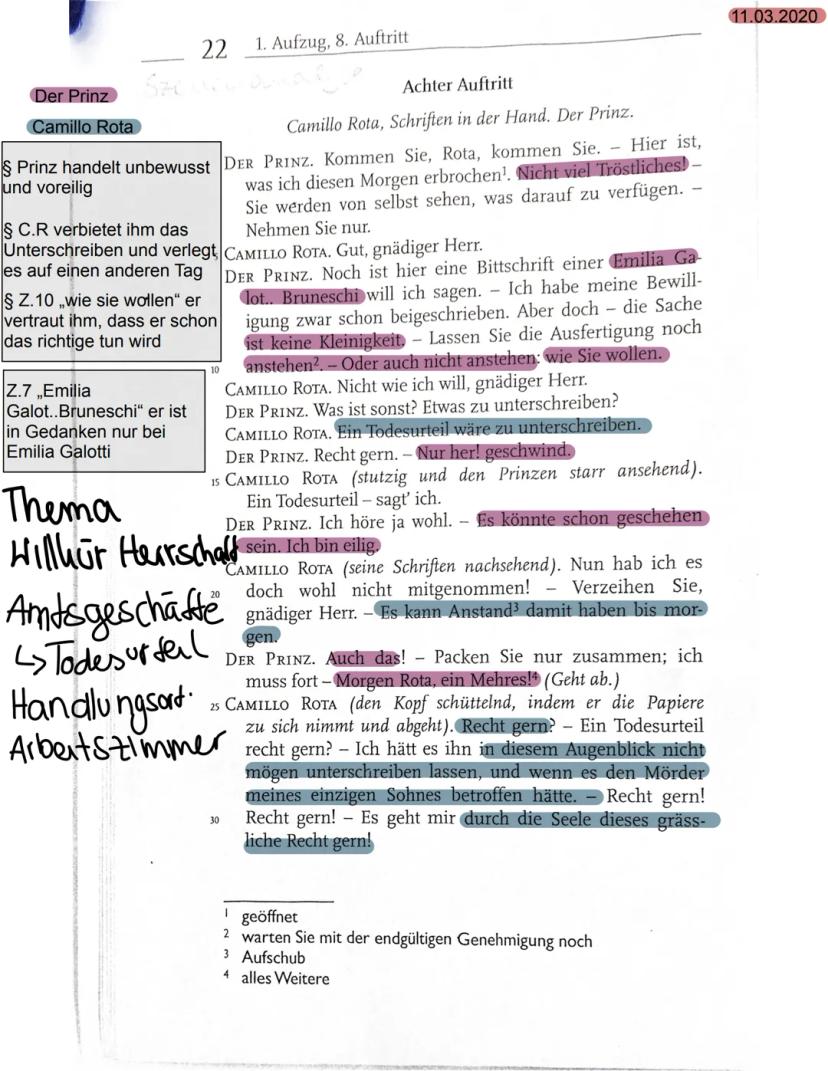 11.03.2020
22 1. Aufzug, 8. Auftritt
Achter Auftritt
Der Prinz
Camillo Rota
Camillo Rota, Schriften in der Hand. Der Prinz.
§ Prinz handelt unbewusst
und voreilig
§ C.R verbietet ihm das
Unterschreiben und verlegt
es auf einen anderen Tag
§ Z.10 „wie sie wollen“ er
vertraut ihm, dass er schon
das richtige tun wird
Z.7 „Emilia
Galot..Bruneschi“ er ist
in Gedanken nur bei
Emilia Galotti
Thema
Willkür Herrschaft
Amtsgeschäfte
↳ Todesurteil
Handlungsort:
Arbeitszimmer
DER PRINZ. Kommen Sie, Rota, kommen Sie. – Hier ist,
was ich diesen Morgen erbrochen¹. Nicht viel Tröstliches! –
Sie werden von selbst sehen, was darauf zu verfügen. –
Nehmen Sie nur.
5 CAMILLO ROTA. Gut, gnädiger Herr.
DER PRINZ. Noch ist hier eine Bittschrift einer Emilia Ga-
lot.. Bruneschi will ich sagen. – Ich habe meine Bewill-
igung zwar schon beigeschrieben. Aber doch – die Sache
ist keine Kleinigkeit. – Lassen Sie die Ausfertigung noch
10 anstehen². – Oder auch nicht anstehen: wie Sie wollen.
CAMILLO ROTA. Nicht wie ich will, gnädiger Herr.
DER PRINZ. Was ist sonst? Etwas zu unterschreiben?
CAMILLO ROTA. Ein Todesurteil wäre zu unterschreiben.
DER PRINZ. Recht gern. – Nur her! geschwind.
15 CAMILLO ROTA (stutzig und den Prinzen starr ansehend).
Ein Todesurteil – sagt’ ich.
DER PRINZ. Ich höre ja wohl. – Es könnte schon geschehen
sein. Ich bin eilig.
CAMILLO ROTA (seine Schriften nachsehend). Nun hab ich es
20 doch wohl nicht mitgenommen! – Verzeihen Sie,
gnädiger Herr. – Es kann Anstand³ damit haben bis mor-
gen.
DER PRINZ. Auch das! – Packen Sie nur zusammen; ich
muss fort – Morgen Rota, ein Mehres!⁴ (Geht ab.)
25 CAMILLO ROTA (den Kopf schüttelnd, indem er die Papiere
zu sich nimmt und abgeht). Recht gern? – Ein Todesurteil
recht gern? – Ich hätt es ihn in diesem Augenblick nicht
mögen unterschreiben lassen, und wenn es den Mörder
meines einzigen Sohnes betroffen hätte. – Recht gern!
30 Recht gern! – Es geht mir durch die Seele dieses gräss-
liche Recht gern!
¹ geöffnet
² warten Sie mit der endgültigen Genehmigung noch
³ Aufschub
⁴ alles Weitere